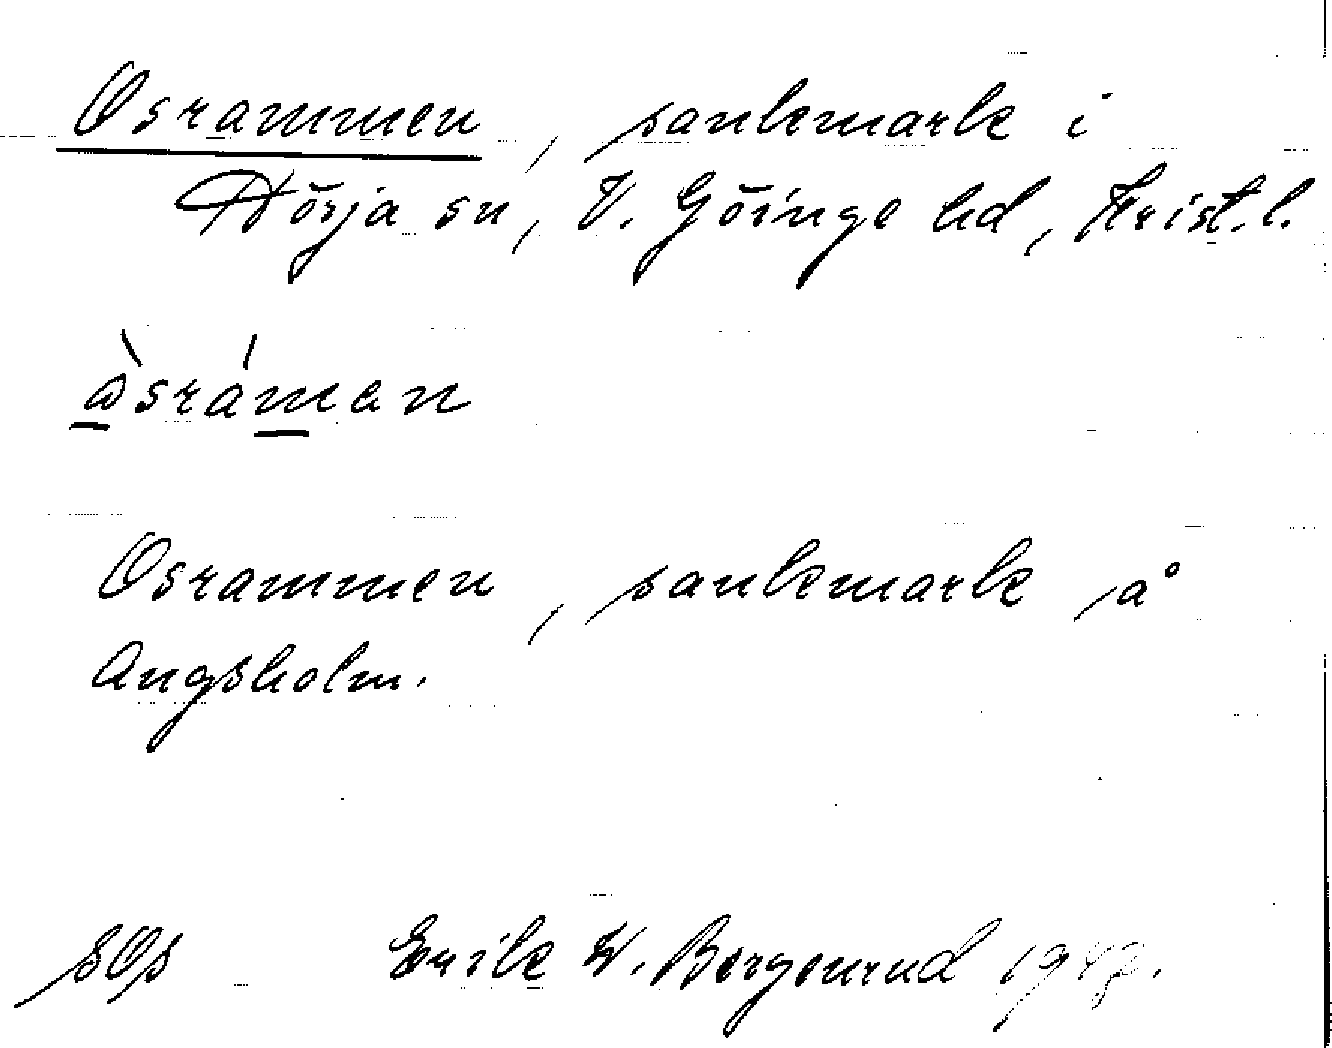 Osrammen, sankmark i
Hörja sn, V. Göinge hd, Krist. l.
òsráman
Osrammen, sankmark på
Angsholm.
sOs Erik W. Bergenrud 1947.